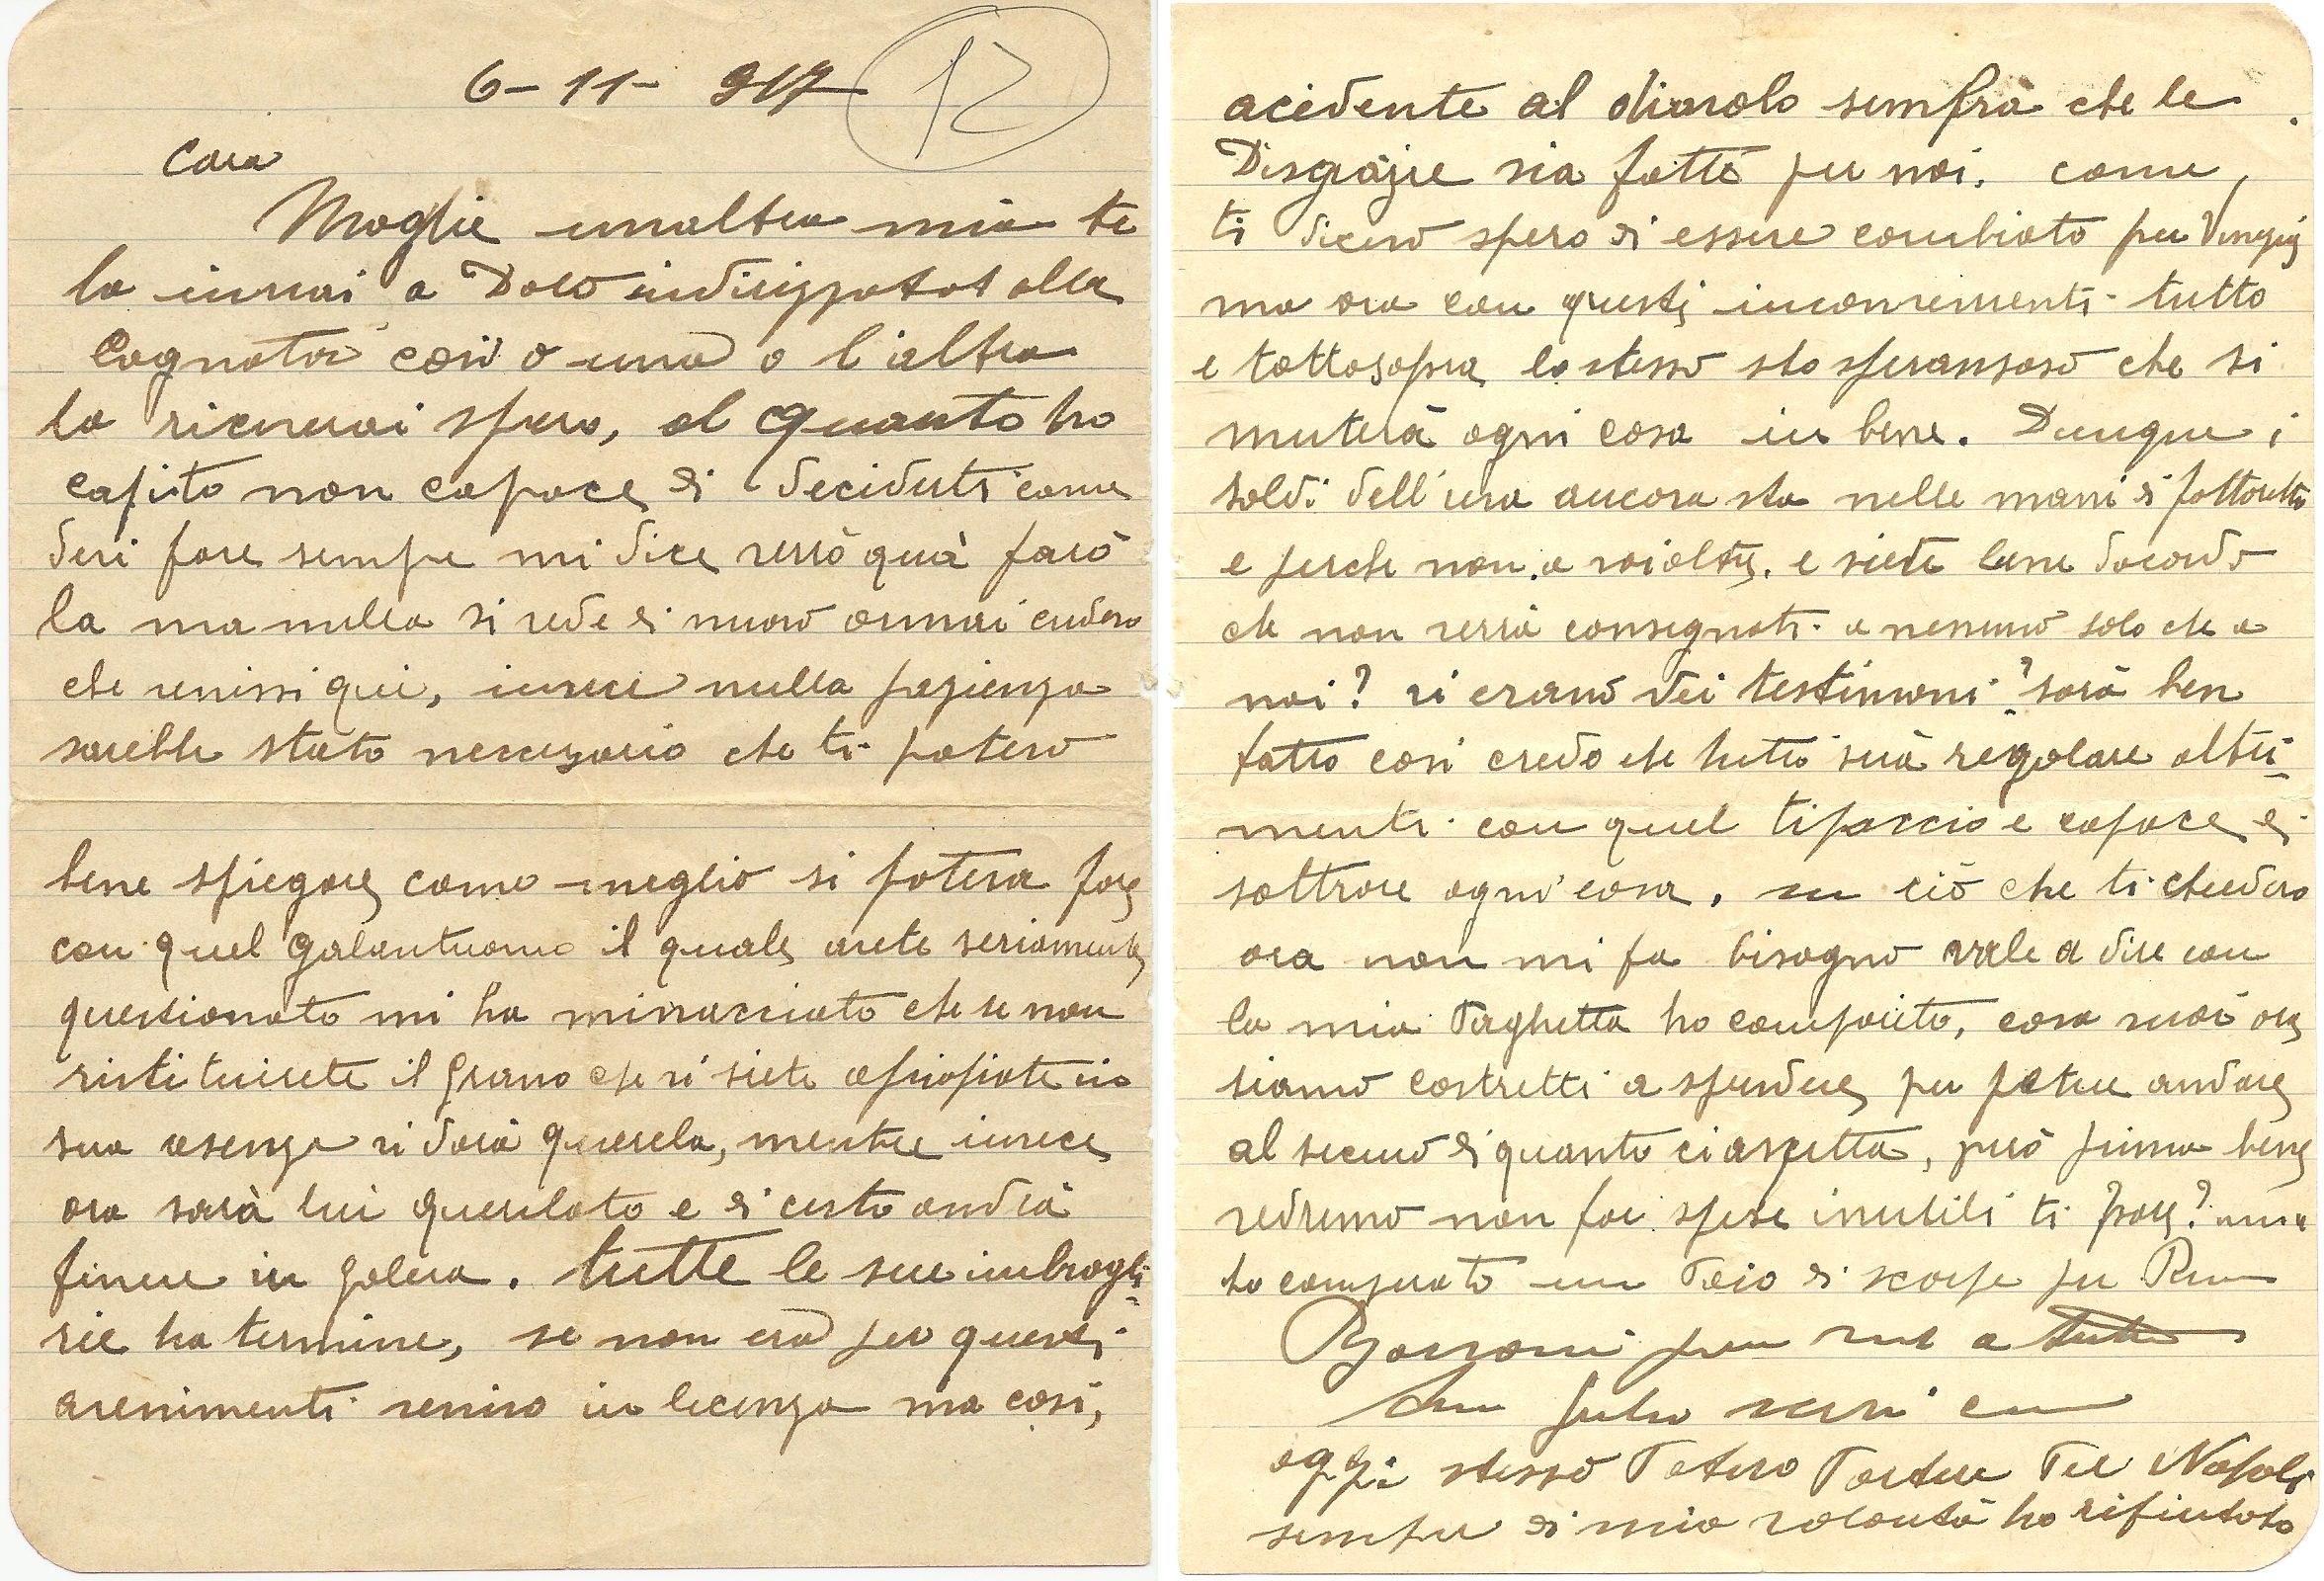 6-11-917
12
Cara
Moglie unaltra mia te
la inviai a Dolo indirizzatat alla
Cognata così o una o l'altra
la riceverai spero, al quanto ho
capito non capace di deciduti come
devi fare sempre mi dice verrò quà farò
la ma nulla si vede di nuovo ormai credevo
che venissi qui, invece nulla pazienza
sarebbe stato necessario che ti potevo
bene spiegare come meglio si poteva fare
con quel galantuomo il quale avete seriamente
questionato mi ha minacciato che se non
ristituirete il grano che vi siete apropiate in
sua asenza vi darà querela, mentre invece
ora sarà lui querelato e di certo andrà
finire in galera. tutte le sue imbrogli-
rie ha termine, se non era per questi
avenimenti venivo in licenza ma così,
acidente al diavolo semprà che le
Disgrazie sia fatte per noi. come
ti dicevo spero di essere cambiato per Venezia
ma ora con questi inconvenienti tutto
e tottosopra lo stesso sto speransoso che si
muterà ogni cosa in bene. Dunque i
soldi dell'uva ancora sta nelle mani di
e perche non a voialtri. e siete bene dacordo
che non verrà consegnati a nessuno solo che a
noi? vi erano dei testimoni? sarà ben
fatto cosi credo che tutto sarà regolare altri-
menti con quel tipaccio e capace di
sottrare ogni cosa. su ciò che ti chiedevo
ora non mi fa bisogno vale a dire con
la mia Targhetta ho comparito, cosa vuoi ora
siamo costretti a spendere per potere andare
al sicuro di quanto ci aspetta, però prima bene
vedremo non far spese inutili ti pare?
ho comperato un Paio di scarpe per
a tutti
oggi stesso Potevo Partire Per Napoli
sempre di mia volontà ho rifiutato